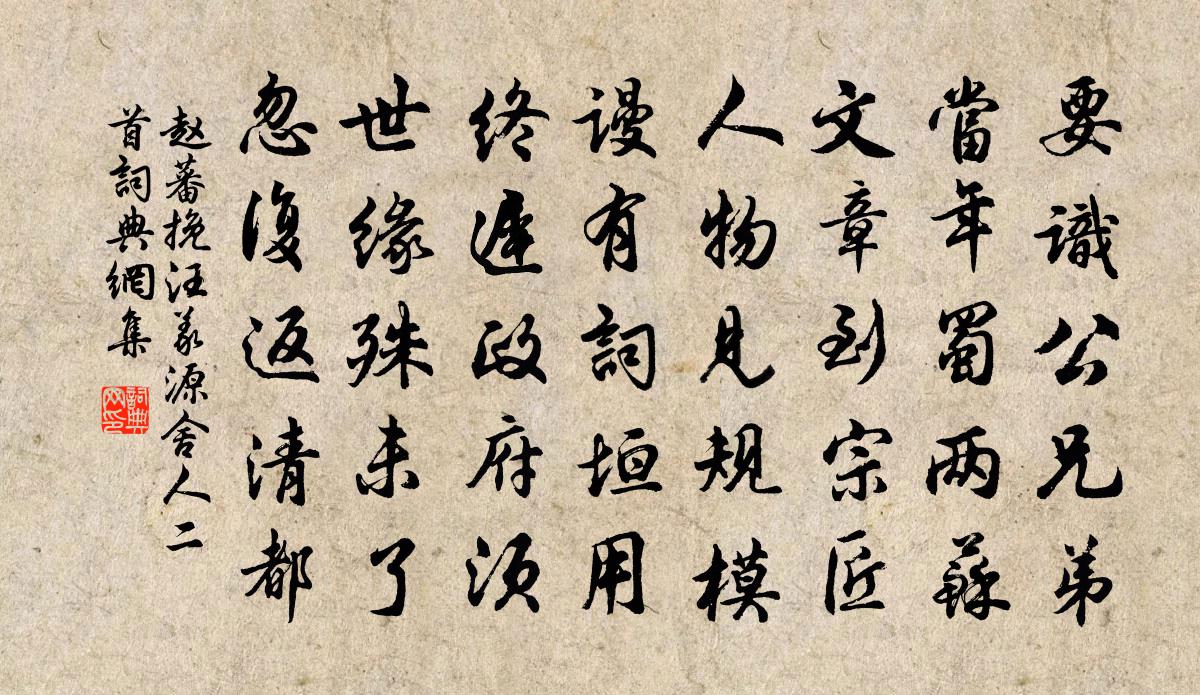 要識公兄弟
當年蜀两蘇
文章到宗匠
人物見規模
謾有詞垣用
終遲政府須
世緣殊未了
忽復返清都
赵蕃挽汪義源舍人二
首詞典網集
詞典
网印